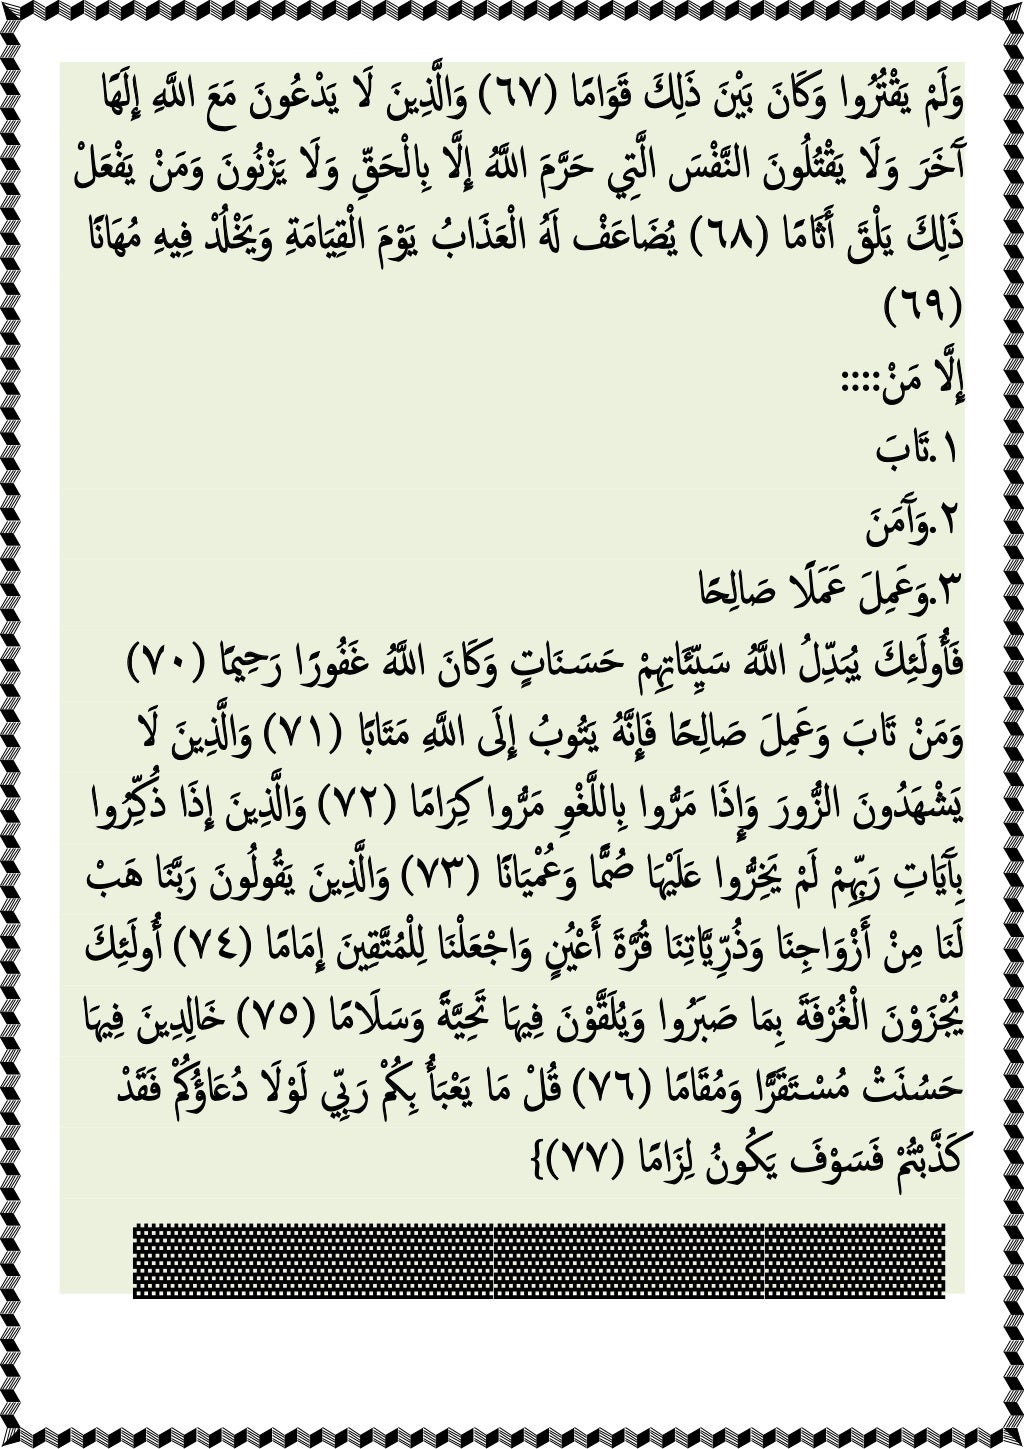 وَلَمْ يَقْتُرُوا وَكَانَ بَيْنَ ذَلِكَ قَوَامًا (٦٧) وَالَّذِينَ لَا يَدْعُونَ مَعَ اللَّهِ إِلَهًا
آَخَرَ وَلَا يَقْتُلُونَ النَّفْسَ الَّتِي حَرَّمَ اللَّهُ إِلَّا بِالْحَقِّ وَلَا يَزْنُونَ وَمَنْ يَفْعَلْ
ذَلِكَ يَلْقَ أَثَامًا (٦٨) يُضَاعَفْ لَهُ الْعَذَابُ يَوْمَ الْقِيَامَةِ وَيَخْلُدْ فِيهِ مُهَانًا
(٦٩)
إِلَّا مَنْ::::
١.تَابَ
٢.وَآَمَنَ
٣.وَعَمِلَ عَمَلًا صَالِحًا
فَأُولَئِكَ يُبَدِّلُ اللَّهُ سَيِّئَاتِهِمْ حَسَنَاتٍ وَكَانَ اللَّهُ غَفُورًا رَحِيمًا (٧٠)
وَمَنْ تَابَ وَعَمِلَ صَالِحًا فَإِنَّهُ يَتُوبُ إِلَى اللَّهِ مَتَابًا (٧١) وَالَّذِينَ لَا
يَشْهَدُونَ الزُّورَ وَإِذَا مَرُّوا بِاللَّغْوِ مَرُّوا كِرَامًا (٧٢) وَالَّذِينَ إِذَا ذُكِّرُوا
بِآَيَاتِ رَبِّهِمْ لَمْ يَخِرُّوا عَلَيْهَا صُمًّا وَعُمْيَانًا (٧٣) وَالَّذِينَ يَقُولُونَ رَبَّنَا هَبْ
لَنَا مِنْ أَزْوَاجِنَا وَذُرِّيَّاتِنَا قُرَّةَ أَعْيُنٍ وَاجْعَلْنَا لِلْمُتَّقِينَ إِمَامًا (٧٤) أُولَئِكَ
يُجْزَوْنَ الْغُرْفَةَ بِمَا صَبَرُوا وَيُلَقَّوْنَ فِيهَا تَحِيَّةً وَسَلَامًا (٧٥) خَالِدِينَ فِيهَا
حَسُنَتْ مُسْتَقَرًّا وَمُقَامًا (٧٦) قُلْ مَا يَعْبَأُ بِكُمْ رَبِّي لَوْلَا دُعَاؤُكُمْ فَقَدْ
كَذَّبْتُمْ فَسَوْفَ يَكُونُ لِزَامًا (٧٧)}